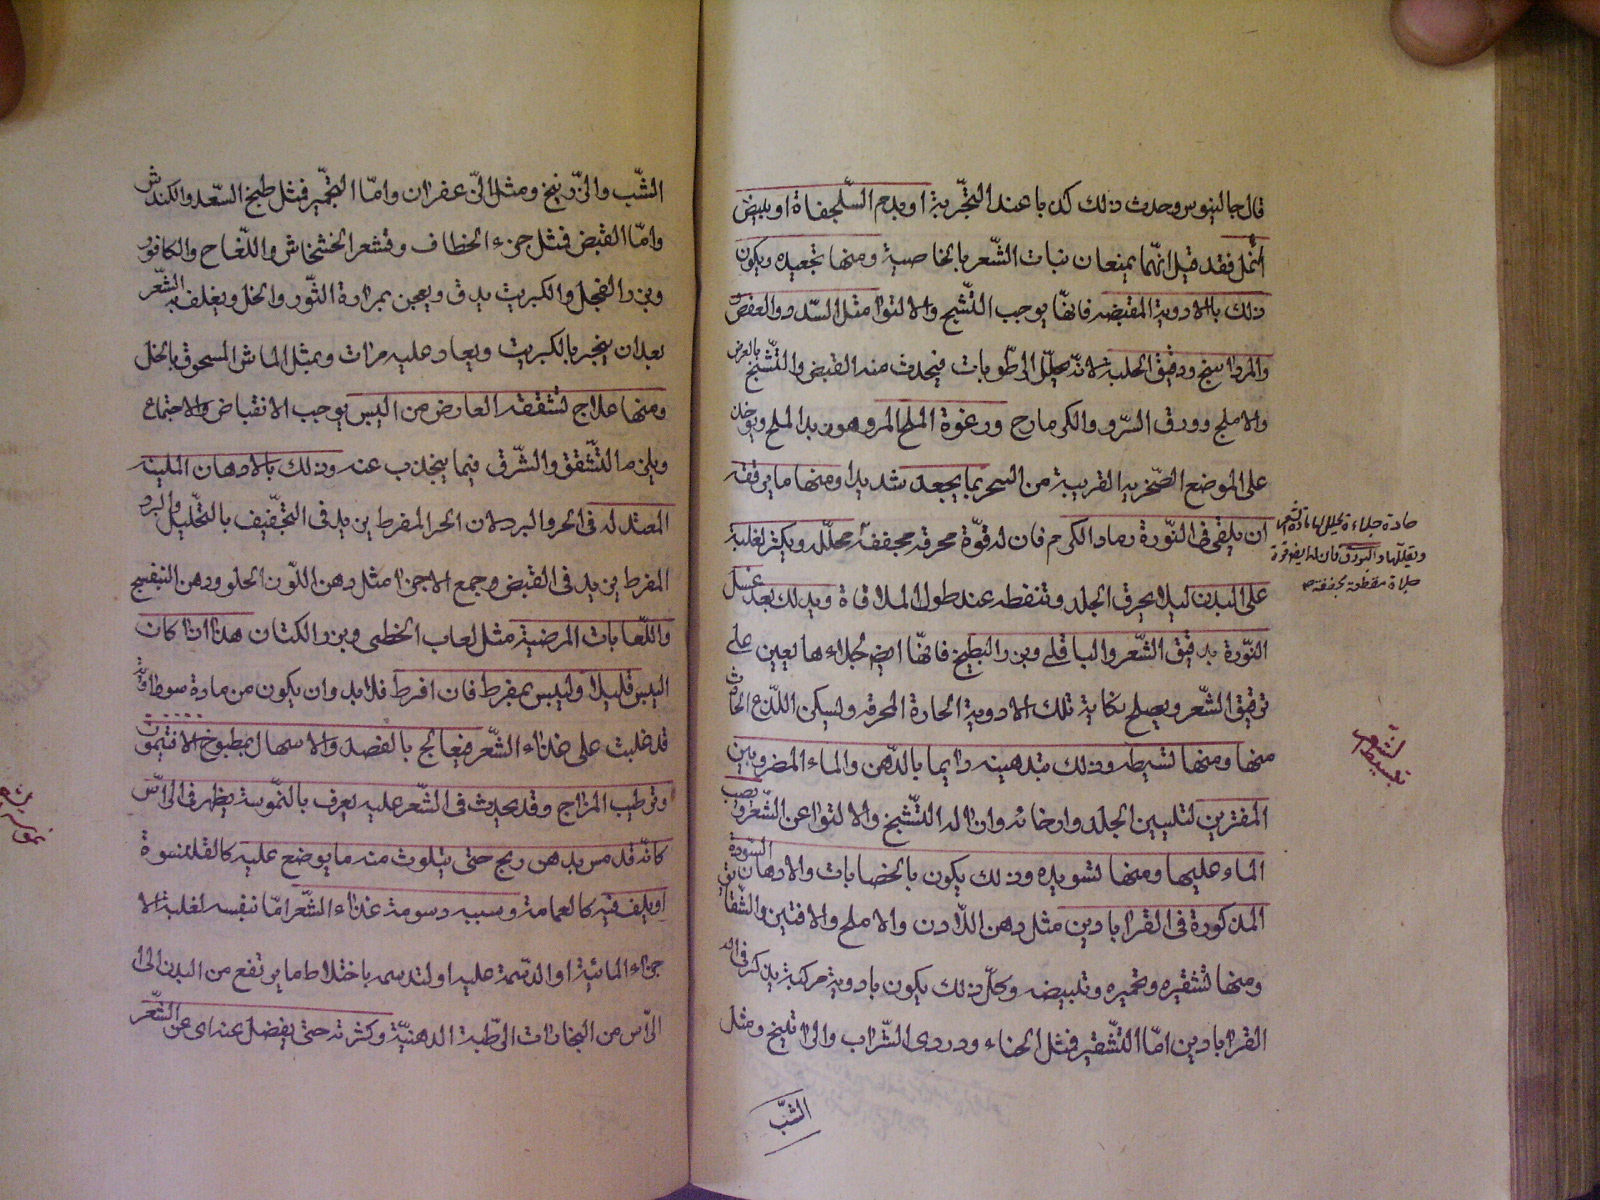 قال جالينوس وحدث ذلك كذبا عند التجربة او بدم السلحفاة او ببيض
النمل فقد قيل انهما يمنعان نبات الشعر بالخاصية ومنها تجعيده ويكون
ذلك بالادوية المقبضه فانها يوجب التشبخ والالتوا مثل السدر والعفص
والمرداسنج ودقيق الحلبه لانه يحلل الرطوبات فيحدث منه القبض والتشبخ بالعرض
والاملج وورق السرو والكزمازج ورغوة الملح المر وهو زبد الملح ويوخذ
على الموضع الصخرية القريبة من البحر بما يجعد شديدا ومنها ما يرققه
ان يلقى فى النورة رماد الكرم فان له قوة محرقه مجففة محلله ويكثر لغلبة
على البدن ليلا يحرق الجلد وتنفطه عند طول الملاقاة ويدلك بعد غسل
النورة بدقيق الشعير والباقلى وبزر البطيخ فانها ايضا جلاءها يعين على
ترقيق الشعر ويصلح نكاية تلك الادوية الحادة المحرقه وليسكن اللذع الحادث
منها ومنها تبسيطه وذلك بتدهينه دايما بالدهن والماء المضروبين
المفترين لتليين الجلد وارخائه وازاله التشبخ والالتوا عن الشعر ويصب
الماء عليها ومنها تسويده وذلك يكون بالخضابات والادهان المسودة
المذكورة فى القراباذين مثل دهن اللاذن والاملج والافتين والشقايق
ومنها تشقيره وتحميره وتبييضه وكل ذلك يكون بادوية مركبة يذكر فى
القراباذين اما التشقير فمثل الحناء ودردى الشراب والراتينج ومثل
الشب
حادة جلاءة تحلل مادة الشعر
ويقللها والبورق فان له ايضا قوة
جلاة مقطعة مجففة صح
تبسيط الشعر
الشب والزرنيخ ومثل الزعفران واما التحمير فمثل طبخ السعد والكندش
واما القبض فمثل خرء الخطاف وقشر الخشخاش واللفاح والكافور
وبزر الفجل والكبريت يدق ويعجن بمرارة الثور والخل ويغلف به الشعر
بعد ان يبخر بالكبريت ويعاد عليه مرات وبمثل الماش المسحوق بالخل
ومنها علاج تشققه العارض من اليبس يوجب الانقباض والاجتماع
ويلزمه التشقق والتفرق فيما ينجذب عنه وذلك بالادهان الملينه
المعتدله فى الحر والبرد لان الحر المفرط يزيد فى التجفيف بالتحليل والبرد
المفرط يزيد فى القبض وجمع الاجزا مثل دهن اللوز الحلو ودهن البنفسج
واللعابات المرضية مثل لعاب الخطمى وبزر الكتان هذا اذا كان
اليبس قليلا وليس بمفرط فان افرط فلا بد وان يكون من مادة سوداوية
قد غلبت على غذاء الشعر فيعالج بالفصد والاسهال بمطبوخ الافتيمون
وترطيب المزاج وقد يحدث فى الشعر علة يعرف بالنموسة يظهر فى الراس
كانه قد مس بدهن ريح حتى يتلوث منه ما يوضع عليه كالقلنسوة
او يلف فيه كالعمامة وسببه دسومة غذاء الشعر اما نفسه لغلبة الا
جزاء المائية او الدسمة عليه او لتدسمه باختلاط ما يرتفع من البدن الى
الراس من البخارات الرطبة الدهنية وكثرته حتى يفضل عن غذاى الشعر